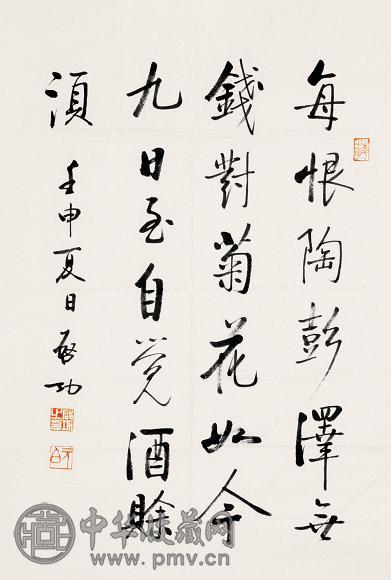 每恨陶彭澤無
錢對菊花如今
九日至自覺酒賒
須
壬申夏日啓功
中华收藏网
www.pmv.cn